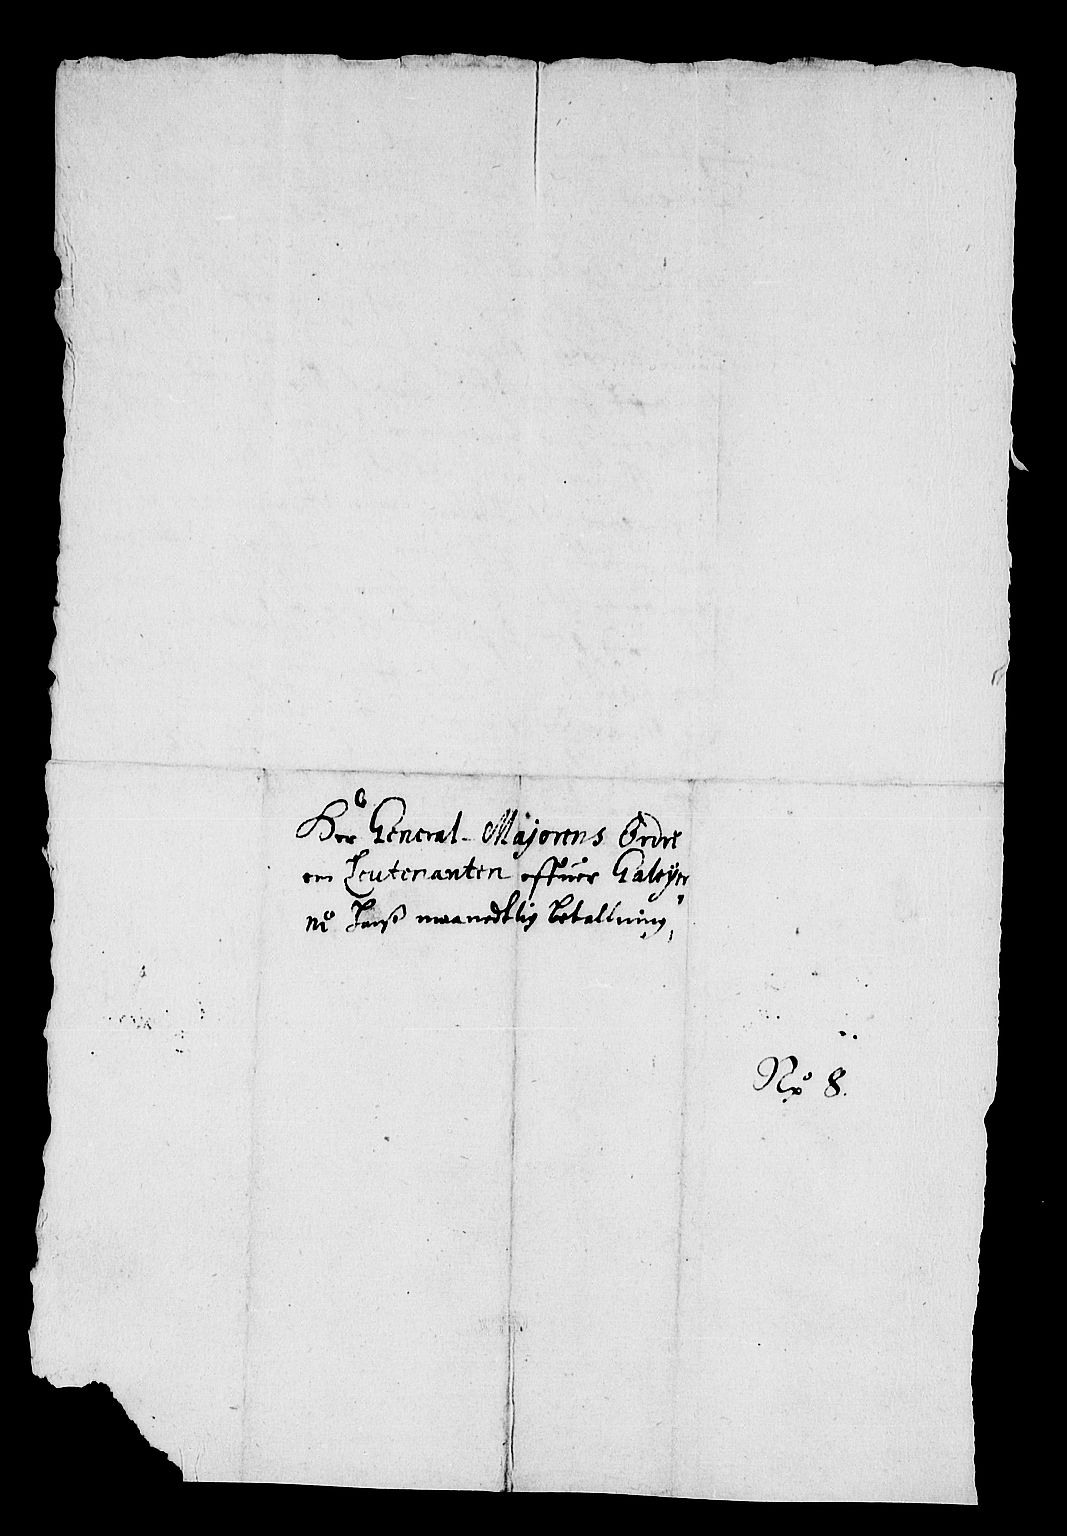 Her General-Majorens Ordre
om Leutenanten offuer Galeyer
ne hanß maanedtlig betallning,
No 8.